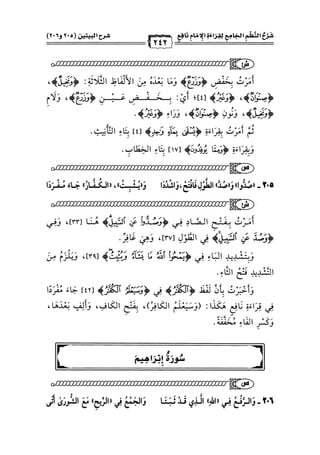 شَرْحُ النَّظْمِ الجَامِعِ لِقِرَاءَةِ الإِمَامِ نَافِعٍ
٢٤٢
شرح البيتين (٢٠٥ و٢٠٦)
أَمَرْتُ بِخَفْضِ ﴿وَزَرْعٌ﴾ وَمَا بَعْدَهُ مِنَ الأَلْفَاظِ الثَّلَاثَةِ: ﴿وَنَخِيلٌ﴾،
﴿صِنْوَانٌ﴾، ﴿وَغَيْرُ﴾ [٤]؛ أَيْ: بِـخَـفْـضِ عَـيْـنِ ﴿وَزَرْعٌ﴾، وَلَامِ
﴿وَنَخِيلٌ﴾، وَنُونِ ﴿صِنْوَانٌ﴾، وَرَاءِ ﴿وَغَيْرُ﴾.
ثُمَّ أَمَرْتُ بِقِرَاءَةِ ﴿تُسْقَىٰ بِمَآءٍ وَٰحِدٍ﴾ [٤] بِتَاءِ التَّأْنِيثِ.
وَبِقِرَاءَةِ ﴿وَمِمَّا يُوقِدُونَ﴾ [١٧] بِتَاءِ الخِطَابِ.
ص
٢٠٥ ـ «صُدُّوا» وَ«صُدَّ» الطَّوْلِ فَافْتَحْ، وَاشْدُدَا وَ«يُثْبِتُ»، «الْكُـفَّـارُ» جَـاءَ مُـفْـرَدَا
أَمَـرْتُ بِـفَـتْـحِ الـصَّـادِ فِـي ﴿وَصُدُّوا۟ عَنِ ٱلسَّبِيلِ﴾ هُـنَـا [٣٣]، وَفِـي
﴿وَصُدَّ عَنِ ٱلسَّبِيلِ﴾ فِي الطَّوْلِ [٣٧]، وَهِيَ غَافِرُ.
وَبِـتَـشْـدِيـدِ الـبَـاءِ فِي ﴿يَمْحُوا۟ ٱللَّهُ مَا يَشَآءُ وَيُثْبِتُ﴾ [٣٩]، وَيَـلْـزَمُ مِـنَ
التَّشْدِيدِ فَتْحُ الثَّاءِ.
وَأَخْبَرْتُ بِأَنَّ لَفْظَ ﴿ٱلْكُفَّـٰرُ﴾ فِي ﴿وَسَيَعْلَمُ ٱلْكُفَّـٰرُ﴾ [٤٢] جَاءَ مُفْرَدًا
فِي قِرَاءَةِ نَافِعٍ هَكَذَا: (وَسَيَعْلَمُ الكَافِرُ)، بِفَتْحِ الكَافِ، وَأَلِفٍ بَعْدَهَا،
وَكَسْرِ الفَاءِ مُخَفَّفَةً.
سُورَةُ إِبْرَاهِيمَ
ص
٢٠٦ ـ وَالـرَّفْـعُ فِـي «اللهِ» الَّـذِي قَـدْ ثَـبَـتَـا وَالْجَمْعُ فِي «الرِّيحِ» مَعَ الشُّورَىٰ أَتَى